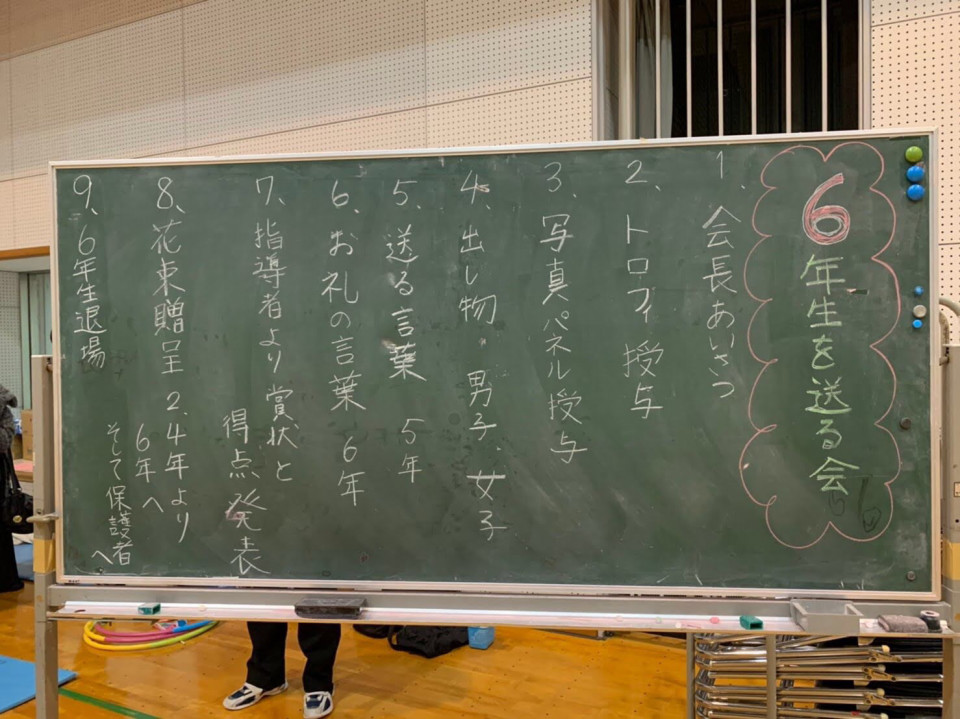 6年生を送る会
1、会長あいさつ
2、トロフィ授与
3、写真パネル授与
4、出し物 男子、女子
5、送る言葉 5年
6、お礼の言葉 6年
7、指導者より賞状と
得点発表
8、花束贈呈 2.4年より
6年へ
そして保護者へ
9、6年生退場